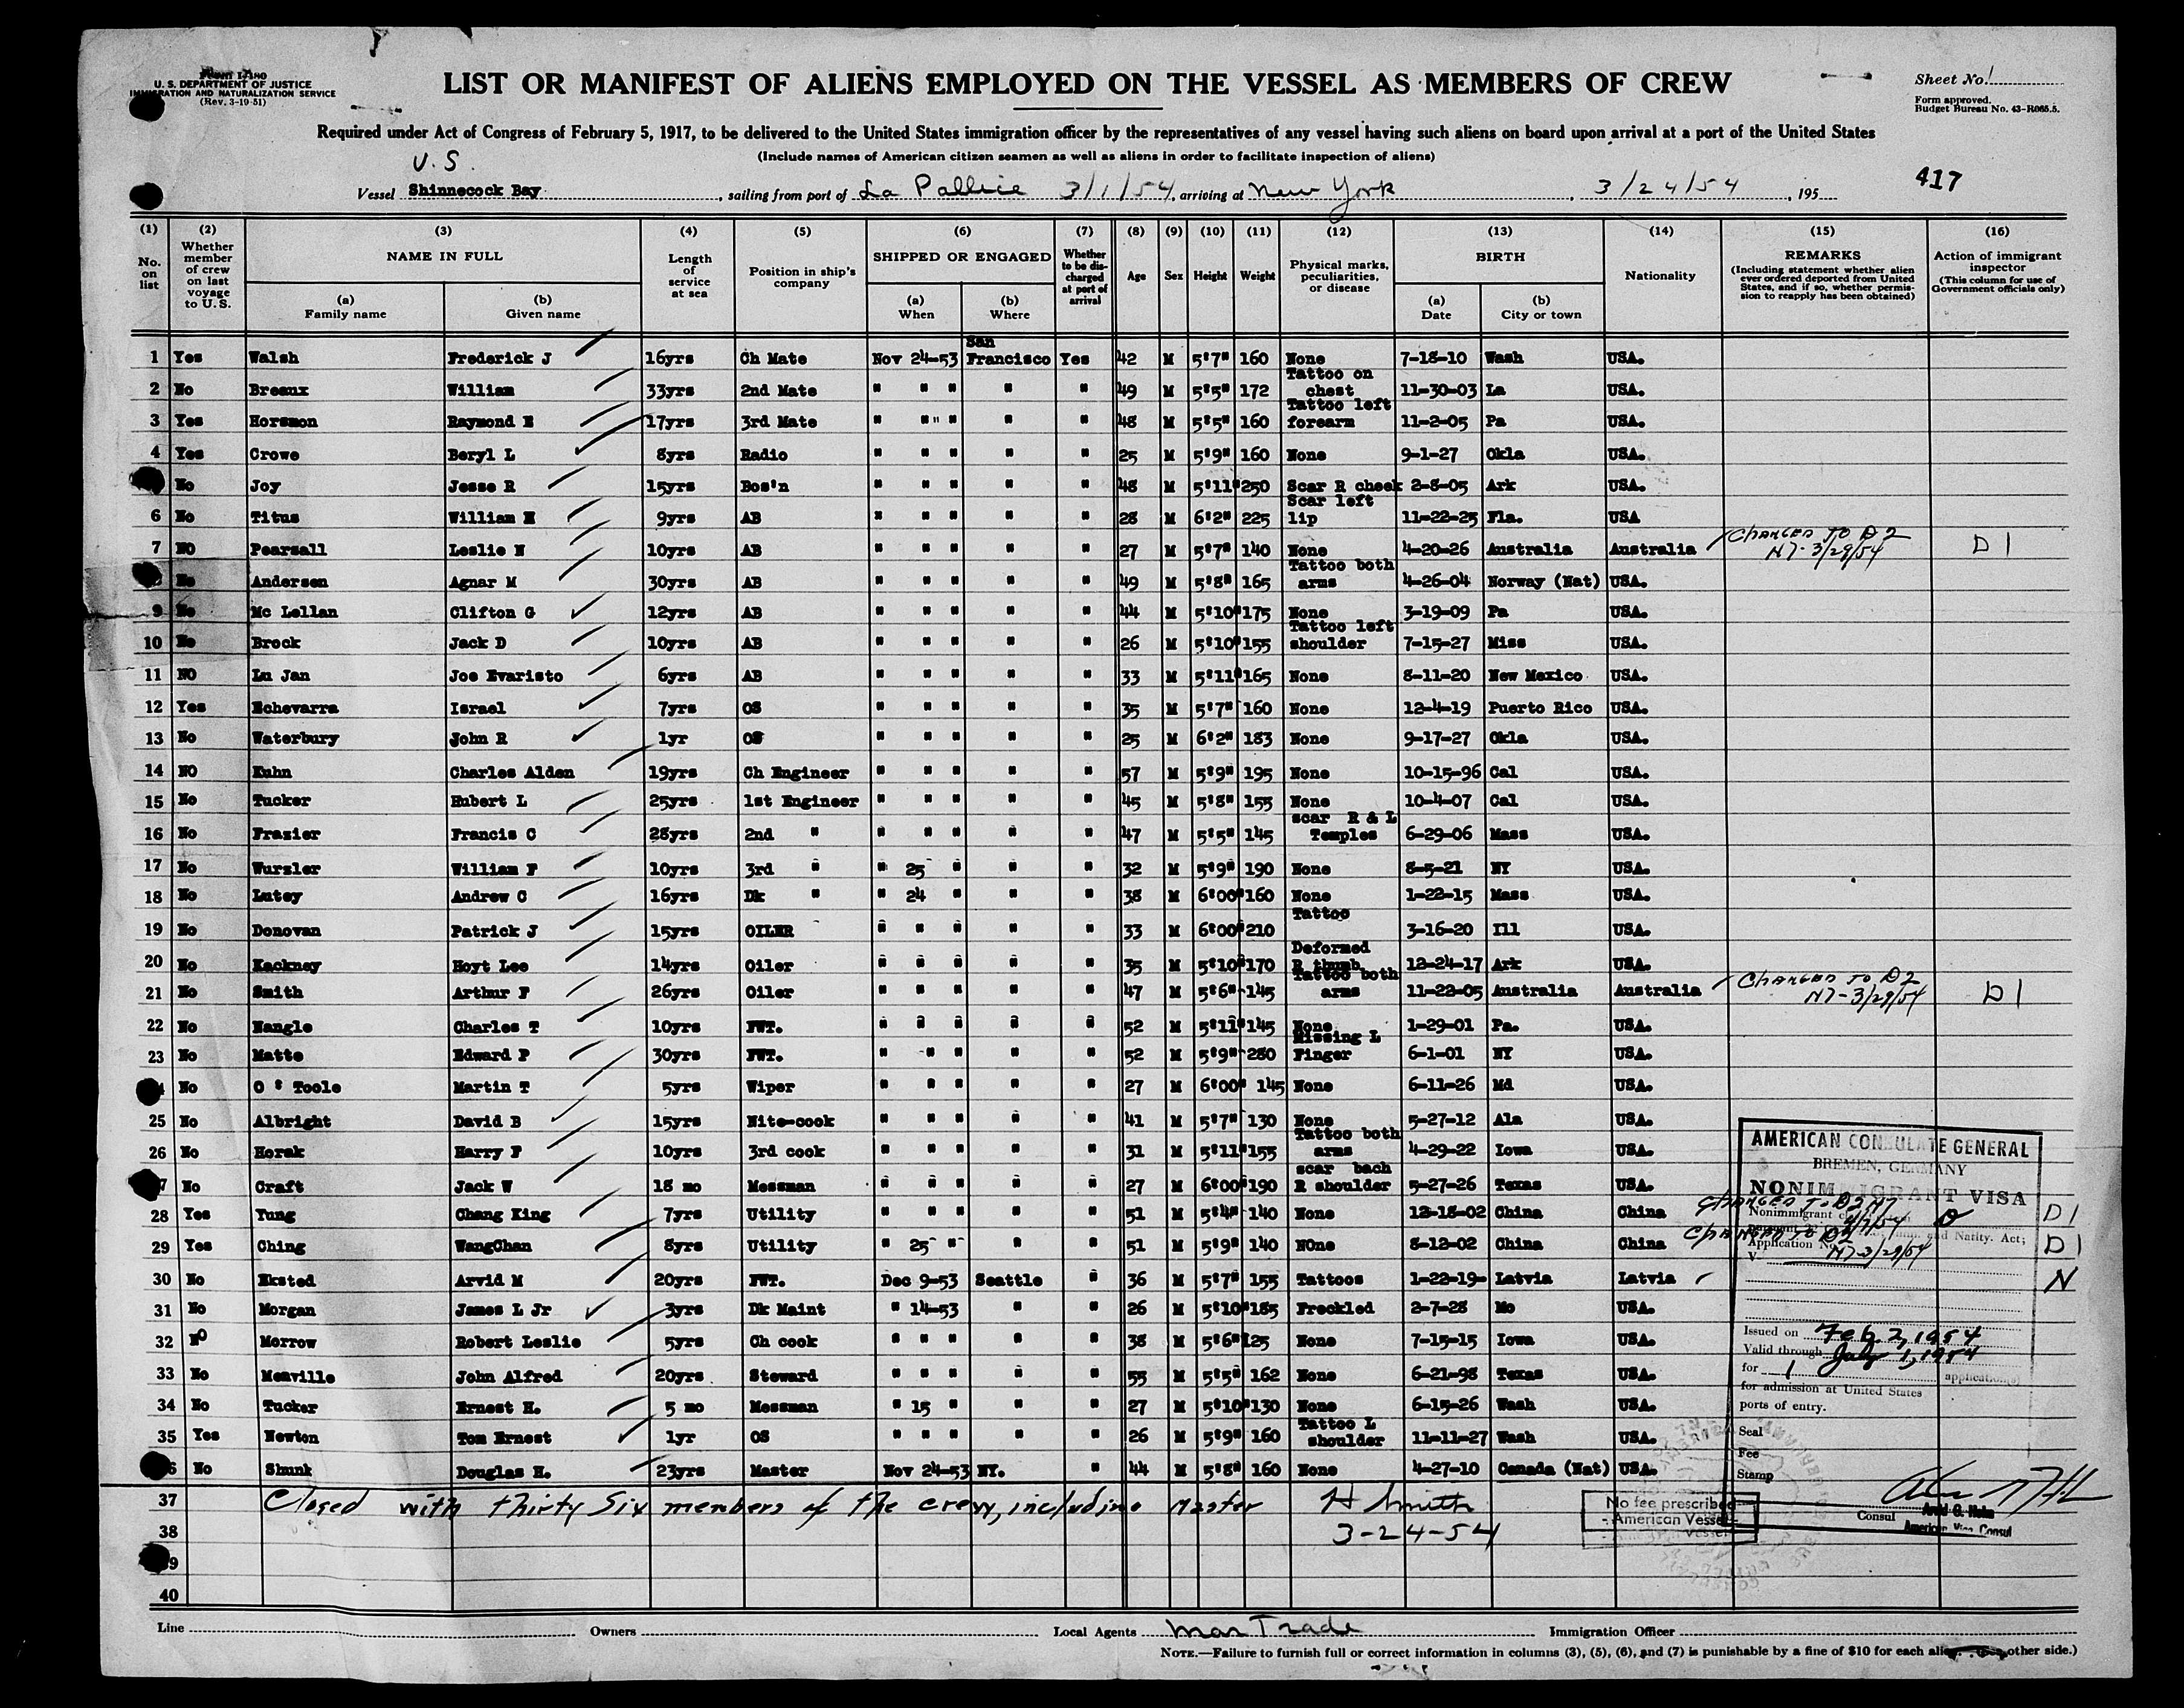 Form I-480
U. S. DEPARTMENT OF JUSTICE
IMMIGRATION AND NATURALIZATION SERVICE
(Rev. 3-19-51)
LIST OR MANIFEST OF ALIENS EMPLOYED ON THE VESSEL AS MEMBERS OF CREW
Sheet No. 1
Form approved.
Budget Bureau No. 43-R065.5.
Required under Act of Congress of February 5, 1917, to be delivered to the United States immigration officer by the representatives of any vessel having such aliens on board upon arrival at a port of the United States
(Include names of American citizen seamen as well as aliens in order to facilitate inspection of aliens)
U.S.
417
Vessel Shinnecock Bay, sailing from port of La Pallice 3/1/54, arriving at New York, 3/24/54, 195
(1) No. on list
(2) Whether member of crew on last voyage to U. S.
(3) NAME IN FULL (a) Family name (b) Given name
(4) Length of service at sea
(5) Position in ship's company
(6) SHIPPED OR ENGAGED (a) When (b) Where
(7) Whether to be discharged at port of arrival
(8) Age
(9) Sex
(10) Height
(11) Weight
(12) Physical marks, peculiarities, or disease
(13) BIRTH (a) Date (b) City or town
(14) Nationality
(15) REMARKS (Including statement whether alien ever ordered deported from United States, and if so, whether permission to reapply has been obtained)
(16) Action of immigrant inspector (This column for use of Government officials only)
1 Yes Walsh Frederick J 16yrs Ch Mate Nov 24-53 San Francisco Yes 42 M 5'7" 160 None 7-18-10 Wash USA.
2 No Breaux William 33yrs 2nd Mate " " " " " 49 M 5'5" 172 Tattoo on chest 11-30-03 La USA.
3 Yes Horsmon Raymond E 17yrs 3rd Mate " " " " " 48 M 5'5" 160 Tattoo left forearm 11-2-05 Pa USA.
4 Yes Crowe Beryl L 8yrs Radio " " " " " 25 M 5'9" 160 None 9-1-27 Okla USA.
No Joy Jesse R 15yrs Bos'n " " " " " 48 M 5'11" 250 Scar R cheek 2-8-05 Ark USA.
6 No Titus William H 9yrs AB " " " " " 28 M 6'2" 225 Scar left lip 11-22-25 Fla. USA
7 NO Pearsall Leslie N 10yrs AB " " " " " 27 M 5'7" 140 None 4-20-26 Australia Australia CHANGED TO D2 N7-3/29/54 D1
No Andersen Agnar M 30yrs AB " " " " " 49 M 5'8" 165 Tattoo both arms 4-26-04 Norway (Nat) USA.
9 No Mc Lellan Clifton G 12yrs AB " " " " " 44 M 5'10" 175 None 3-19-09 Pa USA.
10 No Brock Jack D 10yrs AB " " " " " 26 M 5'10" 155 Tattoo left shoulder 7-15-27 Miss USA.
11 NO Lu Jan Joe Evaristo 6yrs AB " " " " " 33 M 5'11" 165 None 8-11-20 New Mexico USA.
12 Yes Echevarra Israel 7yrs OS " " " " " 35 M 5'7" 160 None 12-4-19 Puerto Rico USA.
13 No Waterbury John R 1yr OS " " " " " 25 M 6'2" 183 None 9-17-27 Okla USA.
14 NO Kuhn Charles Alden 19yrs Ch Engineer " " " " " 57 M 5'9" 195 None 10-15-96 Cal USA.
15 No Tucker Hubert L 25yrs 1st Engineer " " " " " 45 M 5'8" 155 None 10-4-07 Cal USA.
16 No Frazier Francis C 28yrs 2nd " " " " " " 47 M 5'5" 145 scar R & L Temples 6-29-06 Mass USA.
17 No Wurzler William F 10yrs 3rd " " 25 " " " 32 M 5'9" 190 None 8-5-21 NY USA.
18 No Lutey Andrew C 16yrs Dk " " 24 " " " 38 M 6'00" 160 None 1-22-15 Mass USA.
19 No Donovan Patrick J 15yrs OILER " " " " " 33 M 6'00" 210 Tattoo 3-16-20 Ill USA.
20 No Kackney Hoyt Lee 14yrs Oiler " " " " " 35 M 5'10" 170 Deformed R thumb 12-24-17 Ark USA.
21 No Smith Arthur F 26yrs Oiler " " " " " 47 M 5'6" 145 Tattoo both arms 11-22-05 Australia Australia CHANGED TO D2 N7-3/29/54 D1
22 No Nangle Charles T 10yrs FWT. " " " " " 52 M 5'11" 145 None 1-29-01 Pa. USA.
23 No Matte Edward P 30yrs FWT. " " " " " 52 M 5'9" 280 Missing L Finger 6-1-01 NY USA.
No O ' Toole Martin T 5yrs Wiper " " " " " 27 M 6'00" 145 None 6-11-26 Md USA.
25 No Albright David B 15yrs Nite-cook " " " " " 41 M 5'7" 130 None 5-27-12 Ala USA.
26 No Horak Harry F 10yrs 3rd cook " " " " " 31 M 5'11" 155 Tattoo both arms 4-29-22 Iowa USA.
7 No Craft Jack W 18 mo Messman " " " " " 27 M 6'00" 190 scar bach R shoulder 5-27-26 Texas USA.
28 Yes Yung Chang King 7yrs Utility " " " " " 51 M 5'4" 140 None 12-18-02 China China CHANGED TO D2 N7 D1
29 Yes Ching WangChan 8yrs Utility " 25 " " " 51 M 5'9" 140 NOne 8-12-02 China China CHANGED TO D2 N7-3/29/54 D1
30 No Eksted Arvid M 20yrs FWT. Dec 9-53 Seattle " 36 M 5'7" 155 Tattoos 1-22-19- Latvia Latvia N
31 No Morgan James L Jr 3yrs Dk Maint " 14-53 " " 26 M 5'10" 185 Freckled 2-7-28 Mo USA.
32 NO Morrow Robert Leslie 5yrs Ch cook " " " " " 38 M 5'6" 125 None 7-15-15 Iowa USA.
33 No Meaville John Alfred 20yrs. Steward " " " " " 55 M 5'5" 162 None 6-21-98 Texas USA.
34 No Tucker Ernest H. 5 mo Messman " 15 " " " 27 M 5'10" 130 None 6-15-26 Wash USA.
35 Yes Newton Tom Ernest 1yr OS " " " " " 26 M 5'9" 160 Tattoo L shoulder 11-11-27 Wash USA.
6 No Shunk Douglas H. 23yrs Master Nov 24-53 NY. " 44 M 5'8" 160 None 4-27-10 Canada (Nat) USA.
37 Closed with thirty six members of the crew, including master H Smith
38 3-24-54
9
40
AMERICAN CONSULATE GENERAL
BREMEN, GERMANY
NONIMMIGRANT VISA
Issued on Feb 2, 1954
Valid through July 1, 1954
for 1 application(s)
for admission at United States
ports of entry.
Seal
Fee
Stamp
Consul
American Vice Consul
No fee prescribed
- American Vessel -
Line Owners Local Agents Mar Trade Immigration Officer
NOTE.—Failure to furnish full or correct information in columns (3), (5), (6), and (7) is punishable by a fine of $10 for each alien. (See other side.)